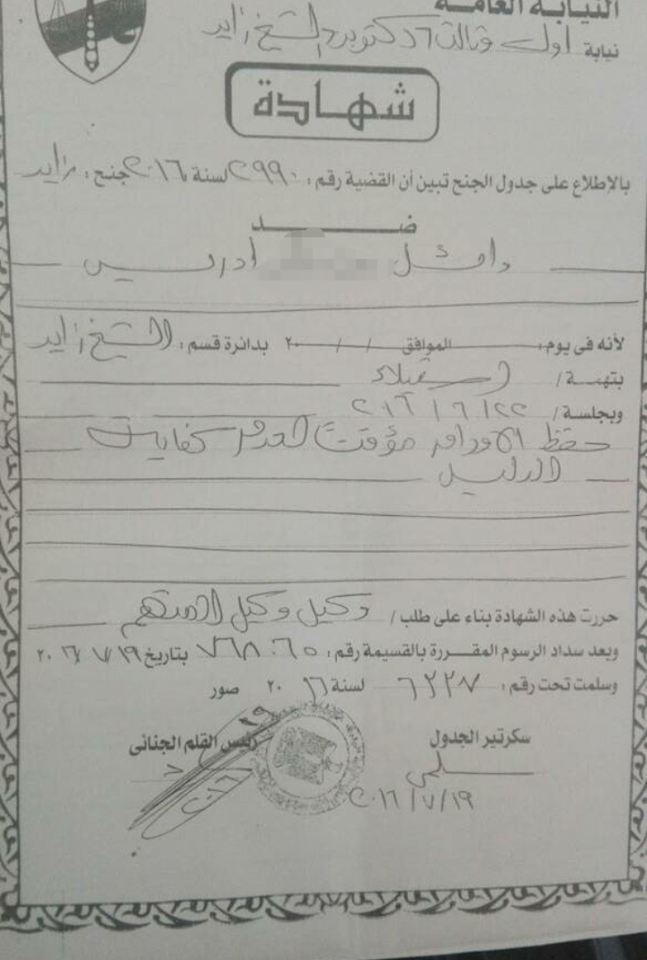 النيابة العامة
نيابة أول وثالث ٦ أكتوبر والشيخ زايد
شهادة
بالإطلاع على جدول الجنح تبين أن القضية رقم : ٢٩٩٠ لسنة ٢٠١٦ جنح : زايد
ضد
وائل ادريس
لأنه فى يوم : الموافق / / ٢٠ بدائرة قسم : الشيخ زايد
بتهمة /
وبجلسة / ٢٢ / ٦ / ٢٠١٦
حفظ الاوراق مؤقتا لعدم كفاية
الدليل
حررت هذه الشهادة بناء على طلب / وكيل وكيل المتهم
وبعد سداد الرسوم المقررة بالقسيمة رقم : ٧٦٨٠٦٥ بتاريخ ١٩ / ٧ / ٢٠١٦
وسلمت تحت رقم : ٦٢٢٧ لسنة ٢٠١٦ صور
سكرتير الجدول
رئيس القلم الجنائى
سلمى
٢٠١٦/٧/١٩
٢٠١٦